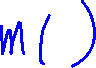 m( )